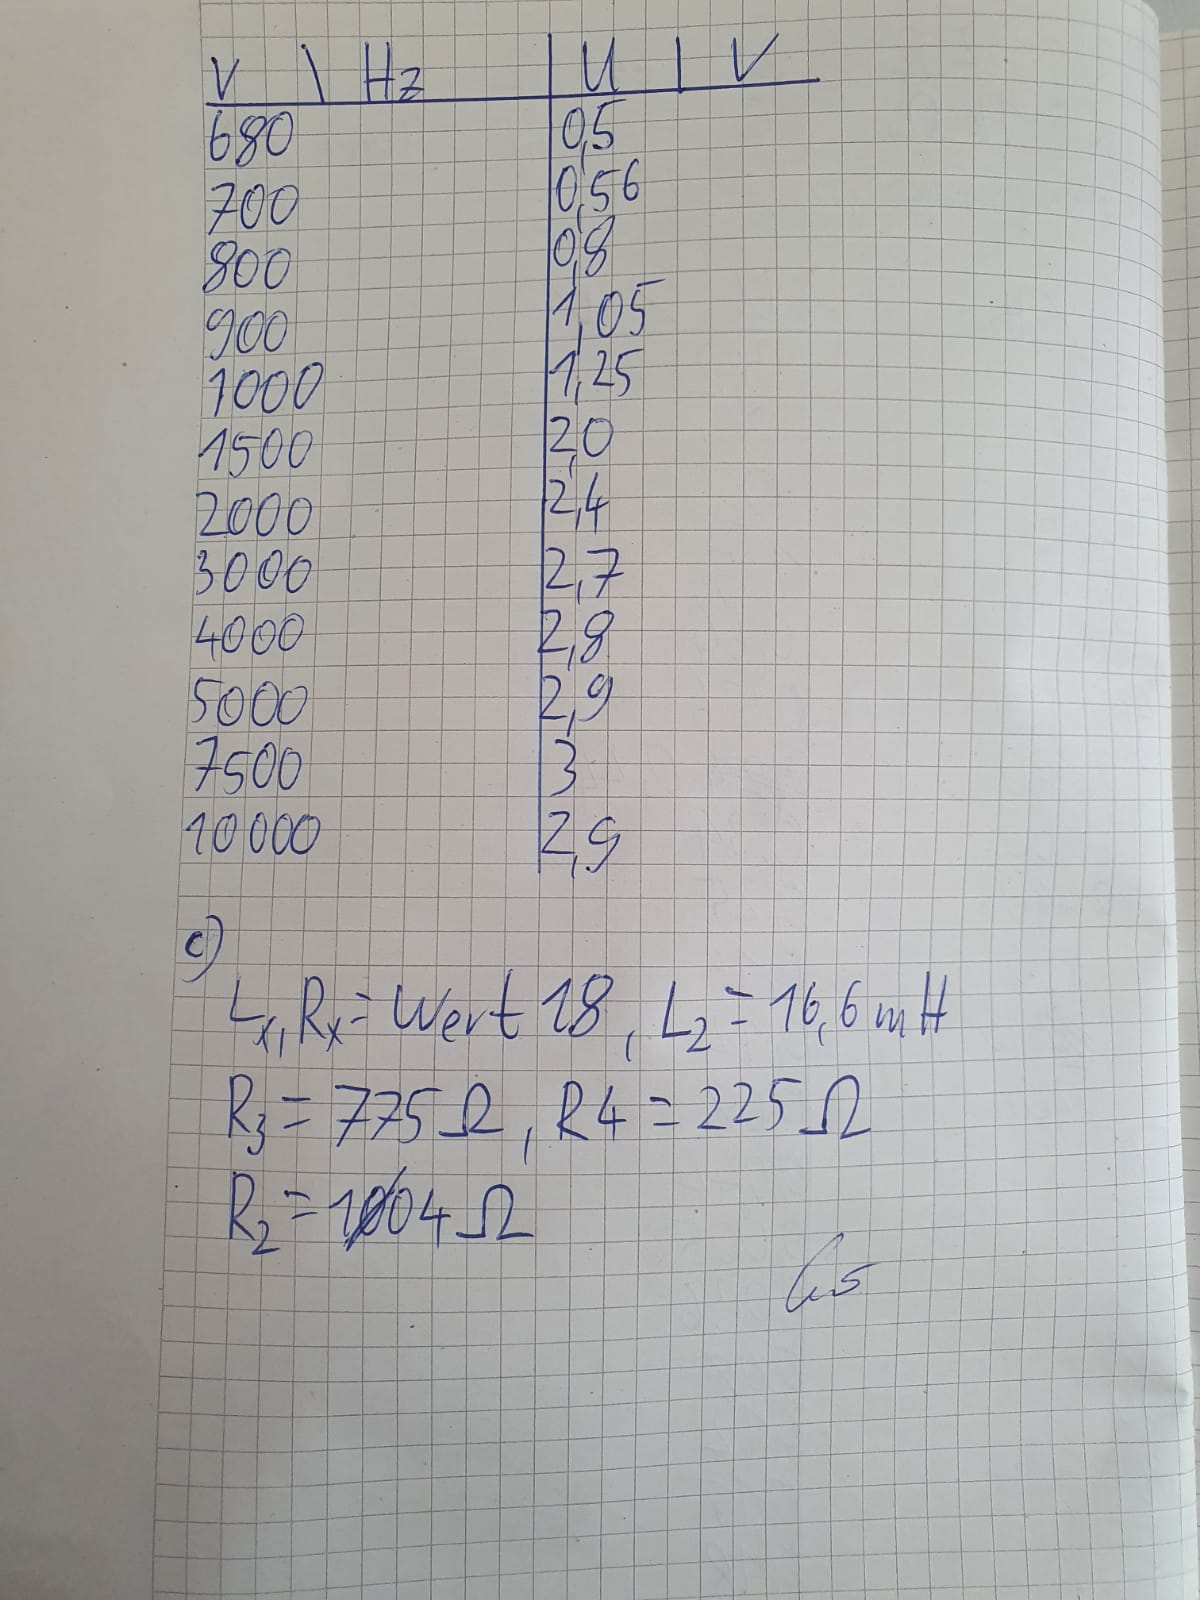 ν \ Hz | U | V
680 0,5
700 0,56
800 0,8
900 1,05
1000 1,25
1500 2,0
2000 2,4
3000 2,7
4000 2,8
5000 2,9
7500 3
10000 2,9
c)
Lx, Rx = Wert 18, L2 = 16,6 mH
R3 = 775 Ω, R4 = 225 Ω
R2 = 104 Ω